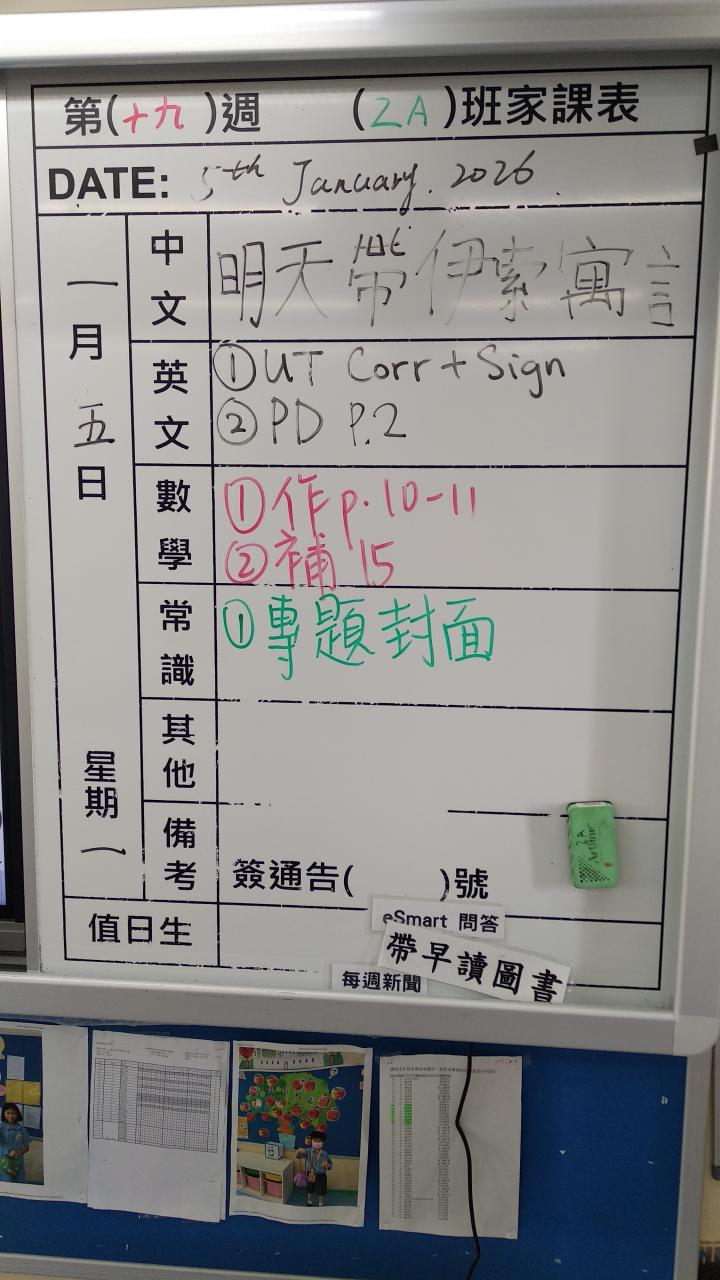 第(十九)週 (2A)班家課表
DATE: 5th January. 2026
一月五日 星期一
中文 明天帶伊索寓言
英文 ①UT Corr + Sign
②PD P.2
數學 ①作p.10-11
②補 15
常識 ①專題封面
其他
備考 簽通告( )號
值日生
eSmart 問答
帶早讀圖書
每週新聞
2A
Artline